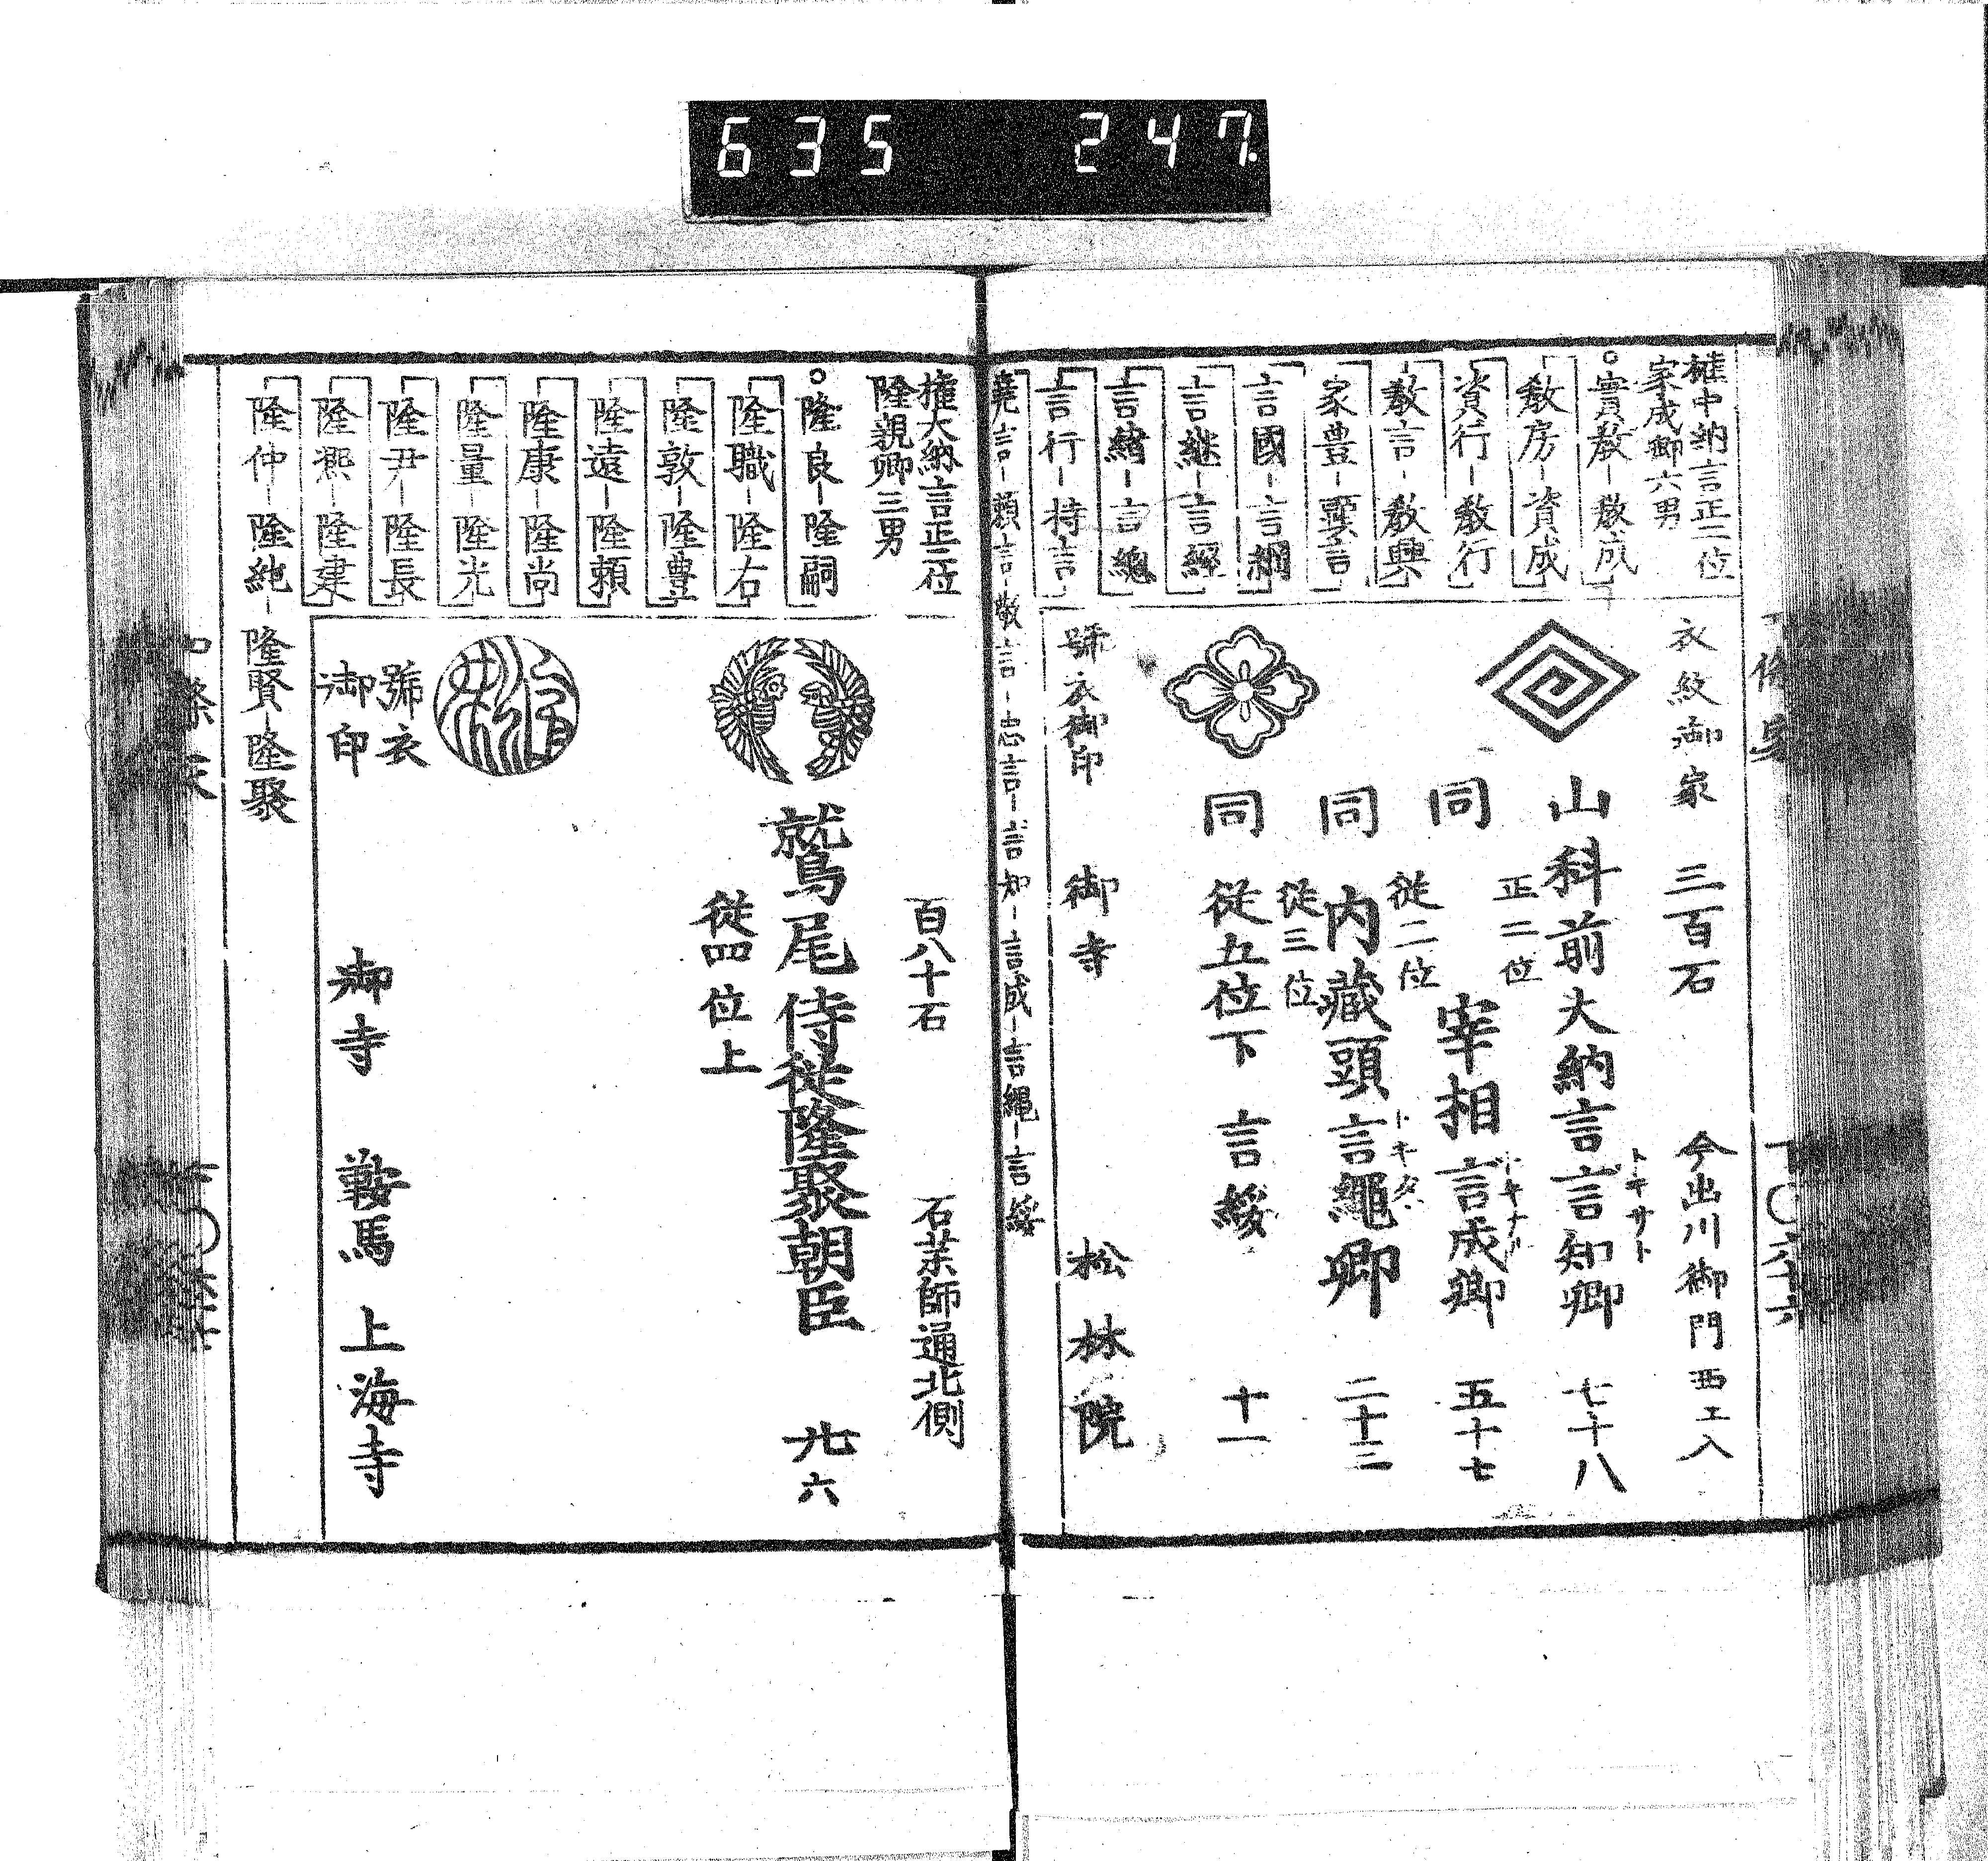 635 247.
權中納言正二位
家成卿六男
實敎-敎成
敎房-資成
資行-敎行
敎言-敎興
家豊-顯言
言國-言綱
言継-言經
言緒-言總
言行-持言
堯言-頼言-敬言-忠言-言知-言成-言縄-言綏
衣紋御家 三百石 今出川御門西エ入
山科前大納言言知卿 七十八
トキサト
正二位
同 宰相言成卿 五十七
トキナリ
從二位
同 内藏頭言繩卿 二十三
トキタヾ
從三位
同 從五位下 言綏 十一
號衣御印 御寺 松林院
權大納言正二位
隆親卿三男
隆良-隆嗣
隆職-隆右
隆敦-隆豊
隆遠-隆頼
隆康-隆尚
隆量-隆光
隆尹-隆長
隆凞-隆建
隆仲-隆純-隆賢-隆聚
百八十石 石茶師通北側
鷲尾侍從隆聚朝臣 卅六
從四位上
號衣
御印
御寺 鞍馬 上海寺